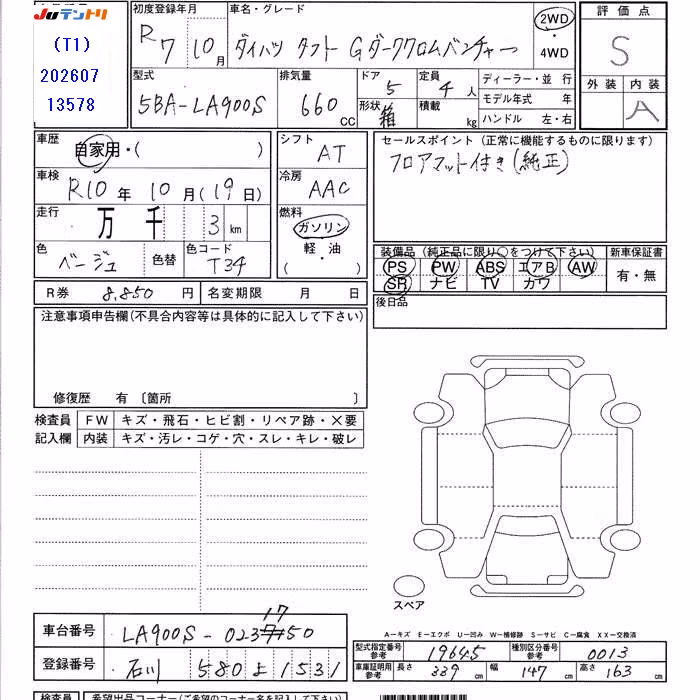 JUテントリ
(T1)
202607
13578
初度登録年月
R7 10月
車名・グレード
ダイハツ タフト Gダーククロムベンチャー
2WD
・
4WD
評価点
S
外装 内装
A
型式
5BA-LA900S
排気量
660 CC
ドア
5
形状
箱
定員
4 人
積載
kg
ディーラー・並行
モデル年式 年
ハンドル 左・右
車歴
自家用・( )
車検
R10年 10月(19日)
走行
万 千 3 km
色
ベージュ
色替
色コード
T34
シフト
AT
冷房
AAC
燃料
ガソリン
軽・油
( )
セールスポイント(正常に機能するものに限ります)
フロアマット付き(純正)
装備品(純正品に限り○をつけて下さい)
PS PW ABS エアB AW
SR ナビ TV カワ
新車保証書
有・無
後日品
R券 8,850 円
名変期限 月 日
注意事項申告欄(不具合内容等は具体的に記入して下さい)
修復歴 有 〔箇所 〕
検査員
記入欄
FW キズ・飛石・ヒビ割・リペア跡・×要
内装 キズ・汚レ・コゲ・穴・スレ・キレ・破レ
スペア
A－キズ E－エクボ U－凹み W－補修跡 S－サビ C－腐食 XX－交換済
車台番号
17
LA900S-0237150
登録番号
石川 580 よ 1531
型式指定番号
参考
19645
種別区分番号
参考
0013
車庫証明用
参考
長さ 339
幅 147
高さ 163
検査員
希望出品コーナー(ご希望のコーナー名を記入して下さい)